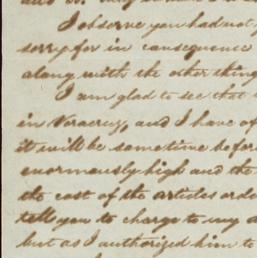 I observe you had not
sorry for in consequence
along with the other thing
I am glad to see that
in Veracruz, and I have of
it will be sometime before
enormously high and the
the cost of the articles orde
tell you to charge to my a
but as I authorized him to